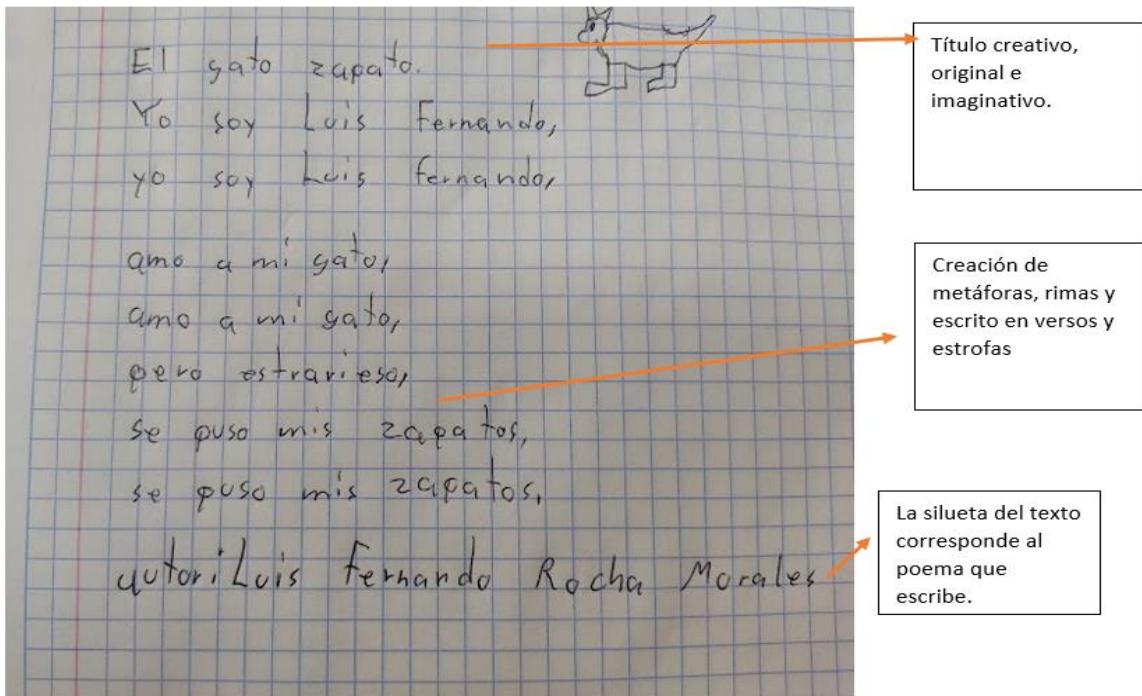 El gato zapato.
Yo soy Luis Fernando,
yo soy Luis fernando,
amo a mi gato,
amo a mi gato,
pero estravieso,
se puso mis zapatos,
se puso mis zapatos,
autor: Luis Fernando Rocha Morales
Título creativo,
original e
imaginativo.
Creación de
metáforas, rimas y
escrito en versos y
estrofas
La silueta del texto
corresponde al
poema que
escribe.